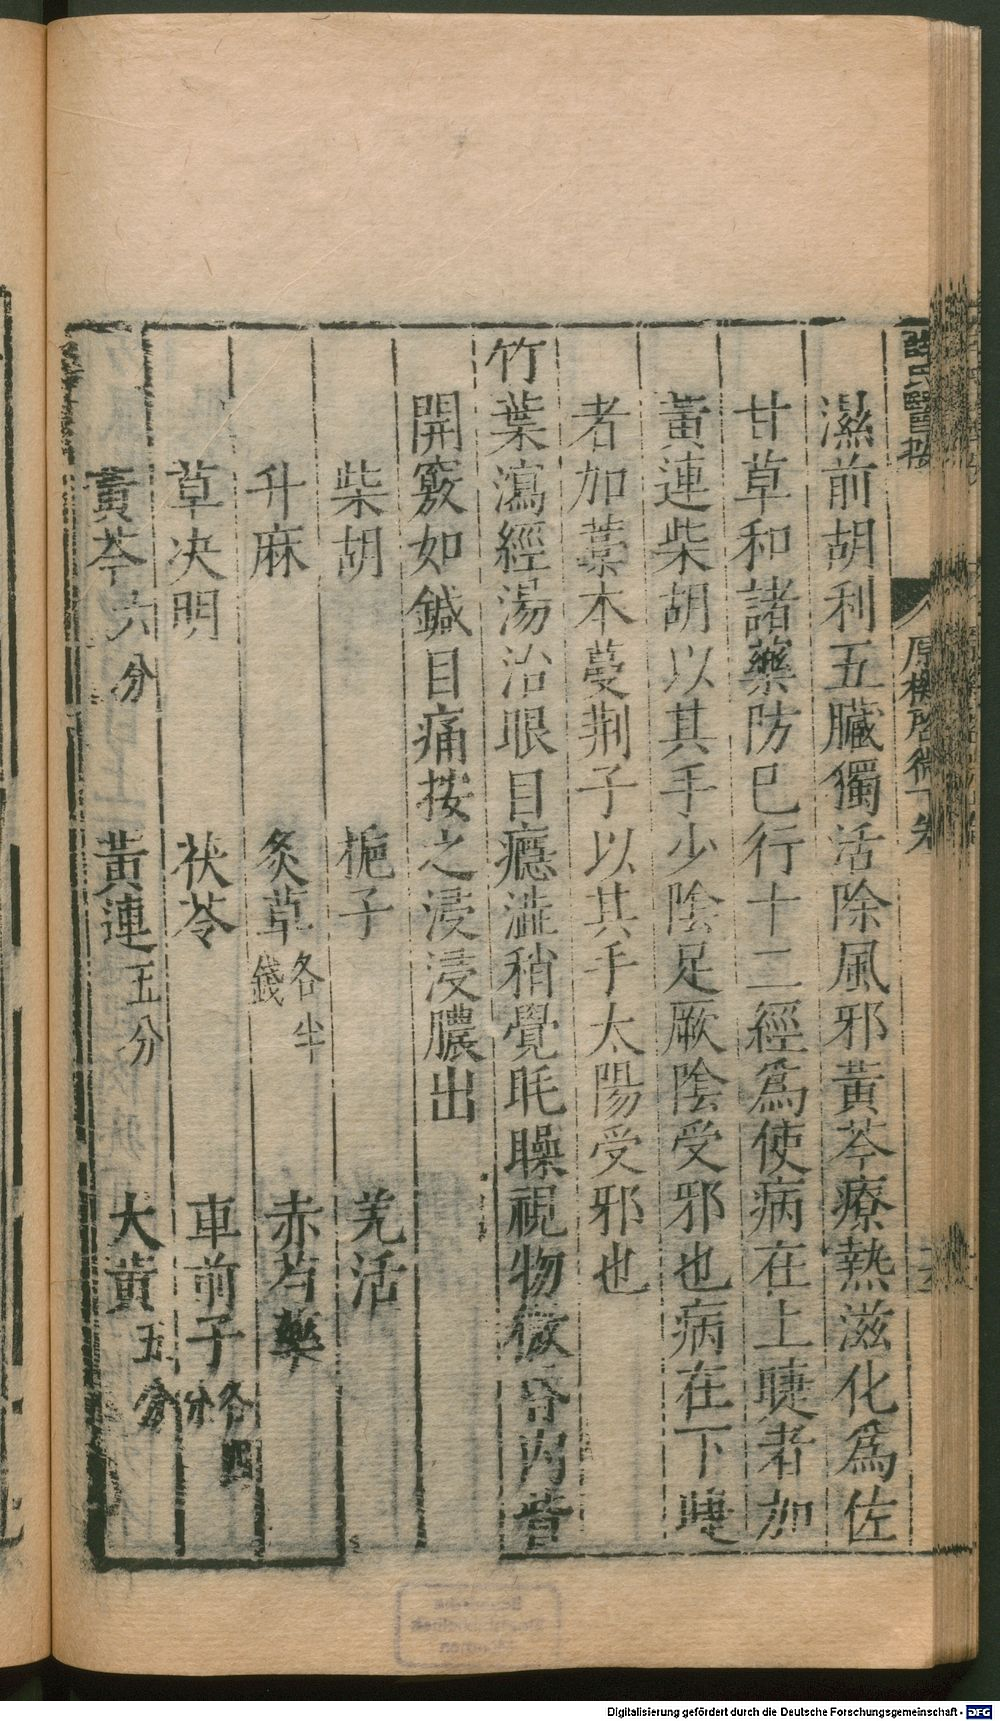 薛氏醫按
原機啓微下卷
濕前胡利五臟獨活除風邪黃芩療熱滋化爲佐
甘草和諸藥防巳行十二經爲使病在上睫者加
黃連柴胡以其手少陰足厥陰受邪也病在下睫
者加藁本蔓荆子以其手太陽受邪也
竹葉瀉經湯治眼目癮澁稍覺眊矂視物微昏內眥
開竅如鍼目痛按之浸浸膿出
柴胡 梔子 羌活
升麻 炙草各半錢 赤芍藥
草决明 茯苓 車前子各四分
黃芩六分 黃連五分 大黃五分
Digitalisierung gefördert durch die Deutsche Forschungsgemeinschaft - DFG